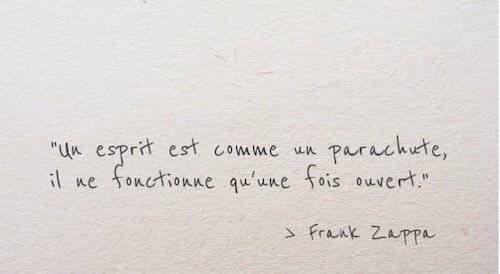 "Un esprit est comme un parachute,
il ne fonctionne qu'une fois ouvert."
> Frank Zappa